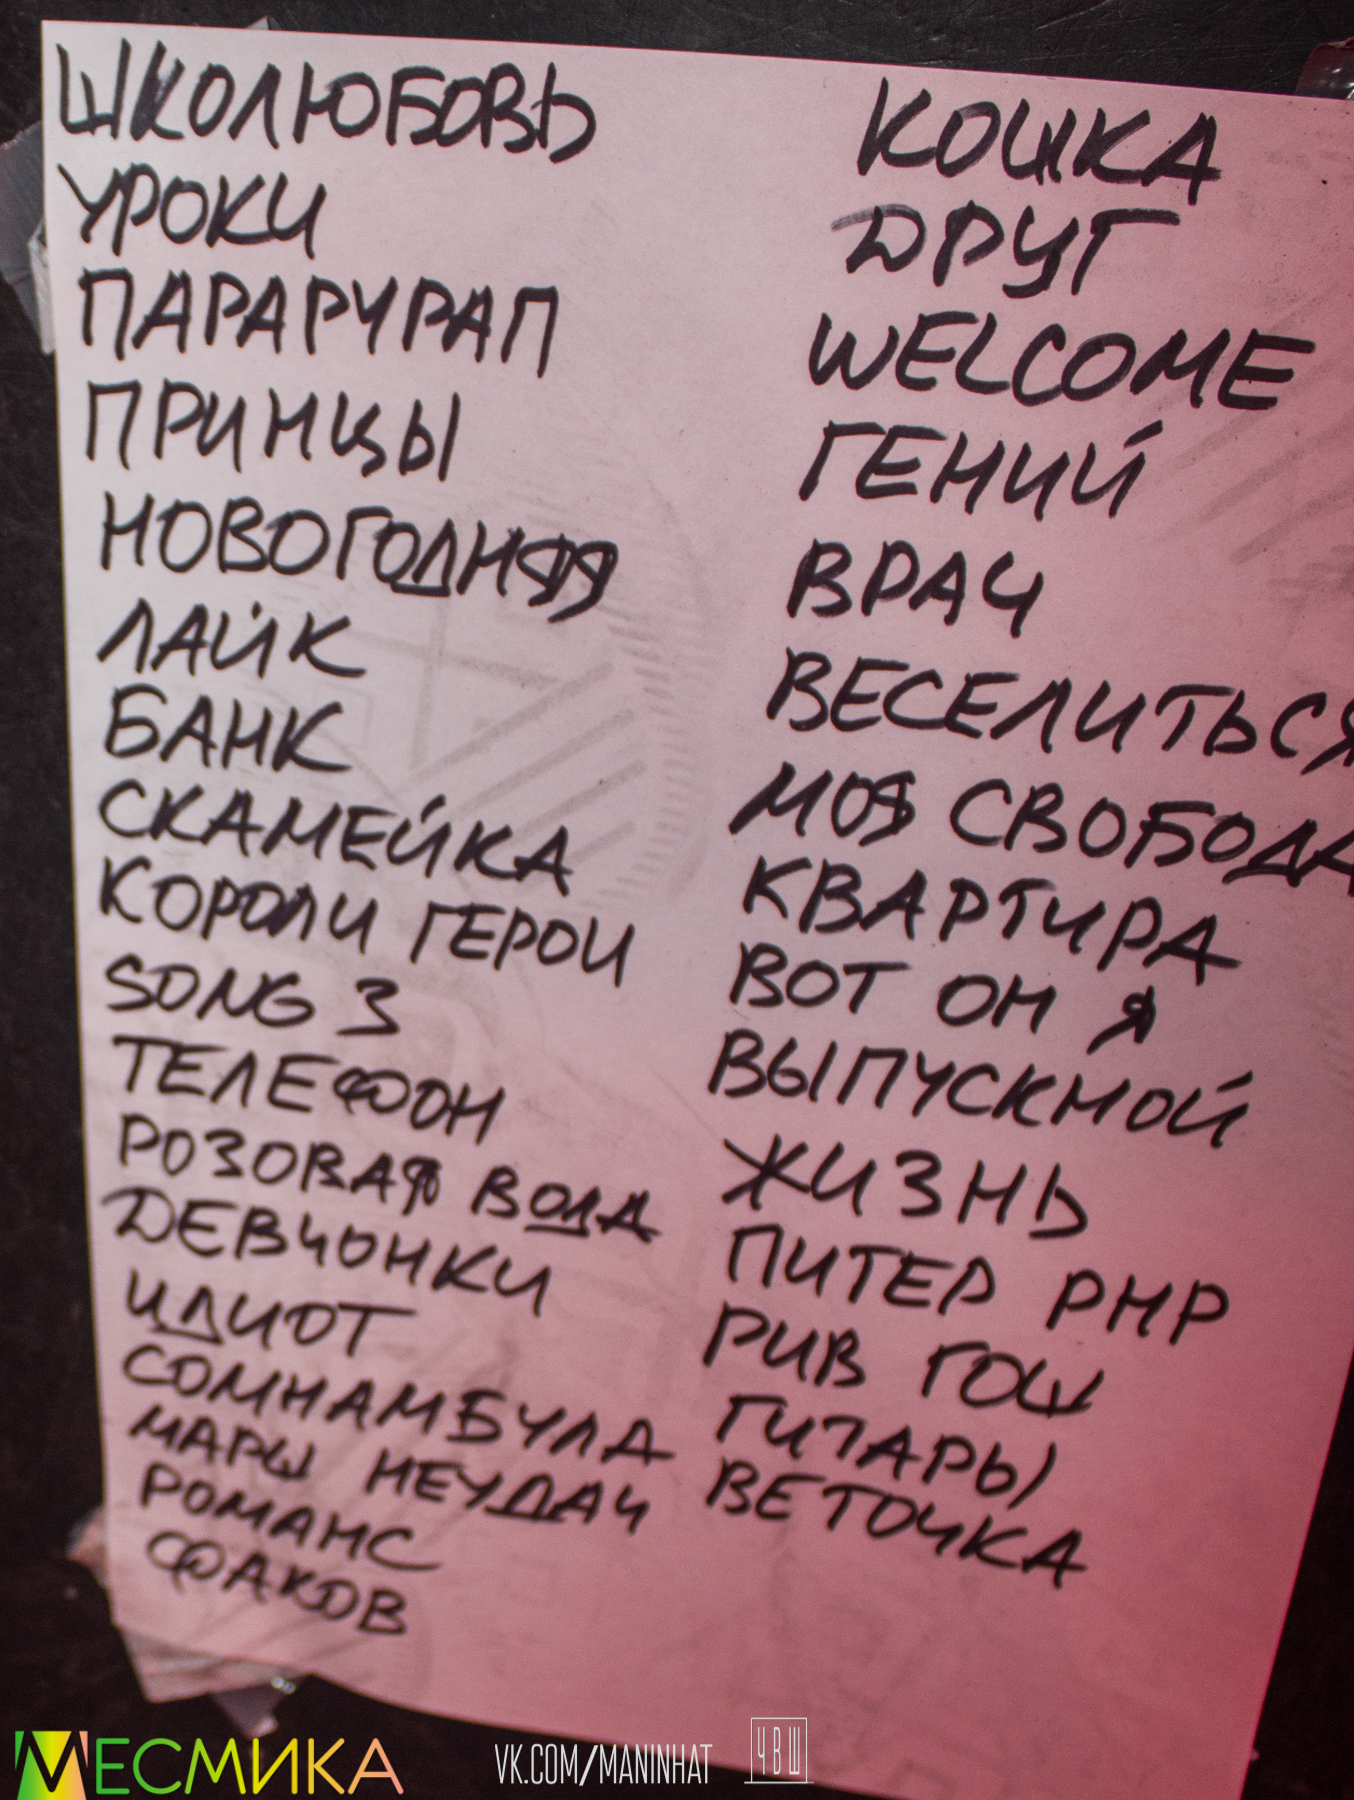 ШКОЛЮБОВЬ
УРОКИ
ПАРАРУРАП
ПРИНЦЫ
НОВОГОДНЯЯ
ЛАЙК
БАНК
СКАМЕЙКА
КОРОЛИ ГЕРОИ
SONG 3
ТЕЛЕФОН
РОЗОВАЯ ВОДА
ДЕВЧОНКИ
ИДИОТ
СОМНАМБУЛА
МАРШ НЕУДАЧ
РОМАНС
ФАКОВ
КОШКА
ДРУГ
WELCOME
ГЕНИЙ
ВРАЧ
ВЕСЕЛИТЬСЯ
МОЯ СВОБОДА
КВАРТИРА
ВОТ ОН Я
ВЫПУСКНОЙ
ЖИЗНЬ
ПИТЕР РНР
РИВ ГОШ
ГИТАРЫ
ВЕТОЧКА
МЕСМИКА
VK.COM/MANINHAT
ЧВШ